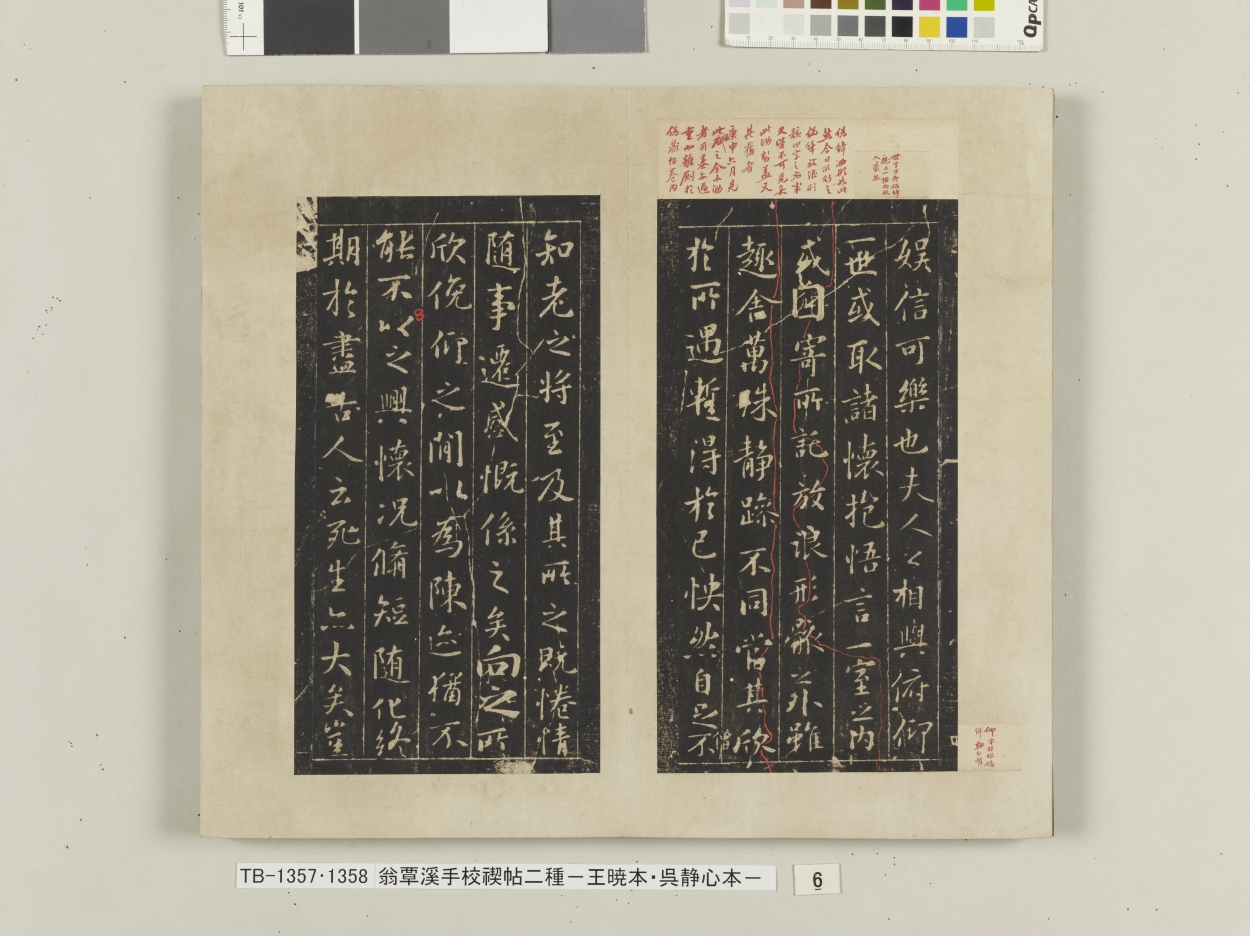 娯信可樂也夫人之相與俯仰
一世或取諸懷抱悟言一室之内
或因寄所託放浪形骸之外雖
趣舎萬殊静躁不同當其欣
於所遇蹔得於己怏然自足不
知老之将至及其所之既惓情
随事遷感慨係之矣向之所
欣俛仰之閒以為陳迹猶不
能不以之興懷況脩短随化終
期於盡古人云死生亦大矣豈
僧
庚申六月見
TB-1357・1358 翁覃溪手校禊帖二種－王暁本・呉静心本－
6